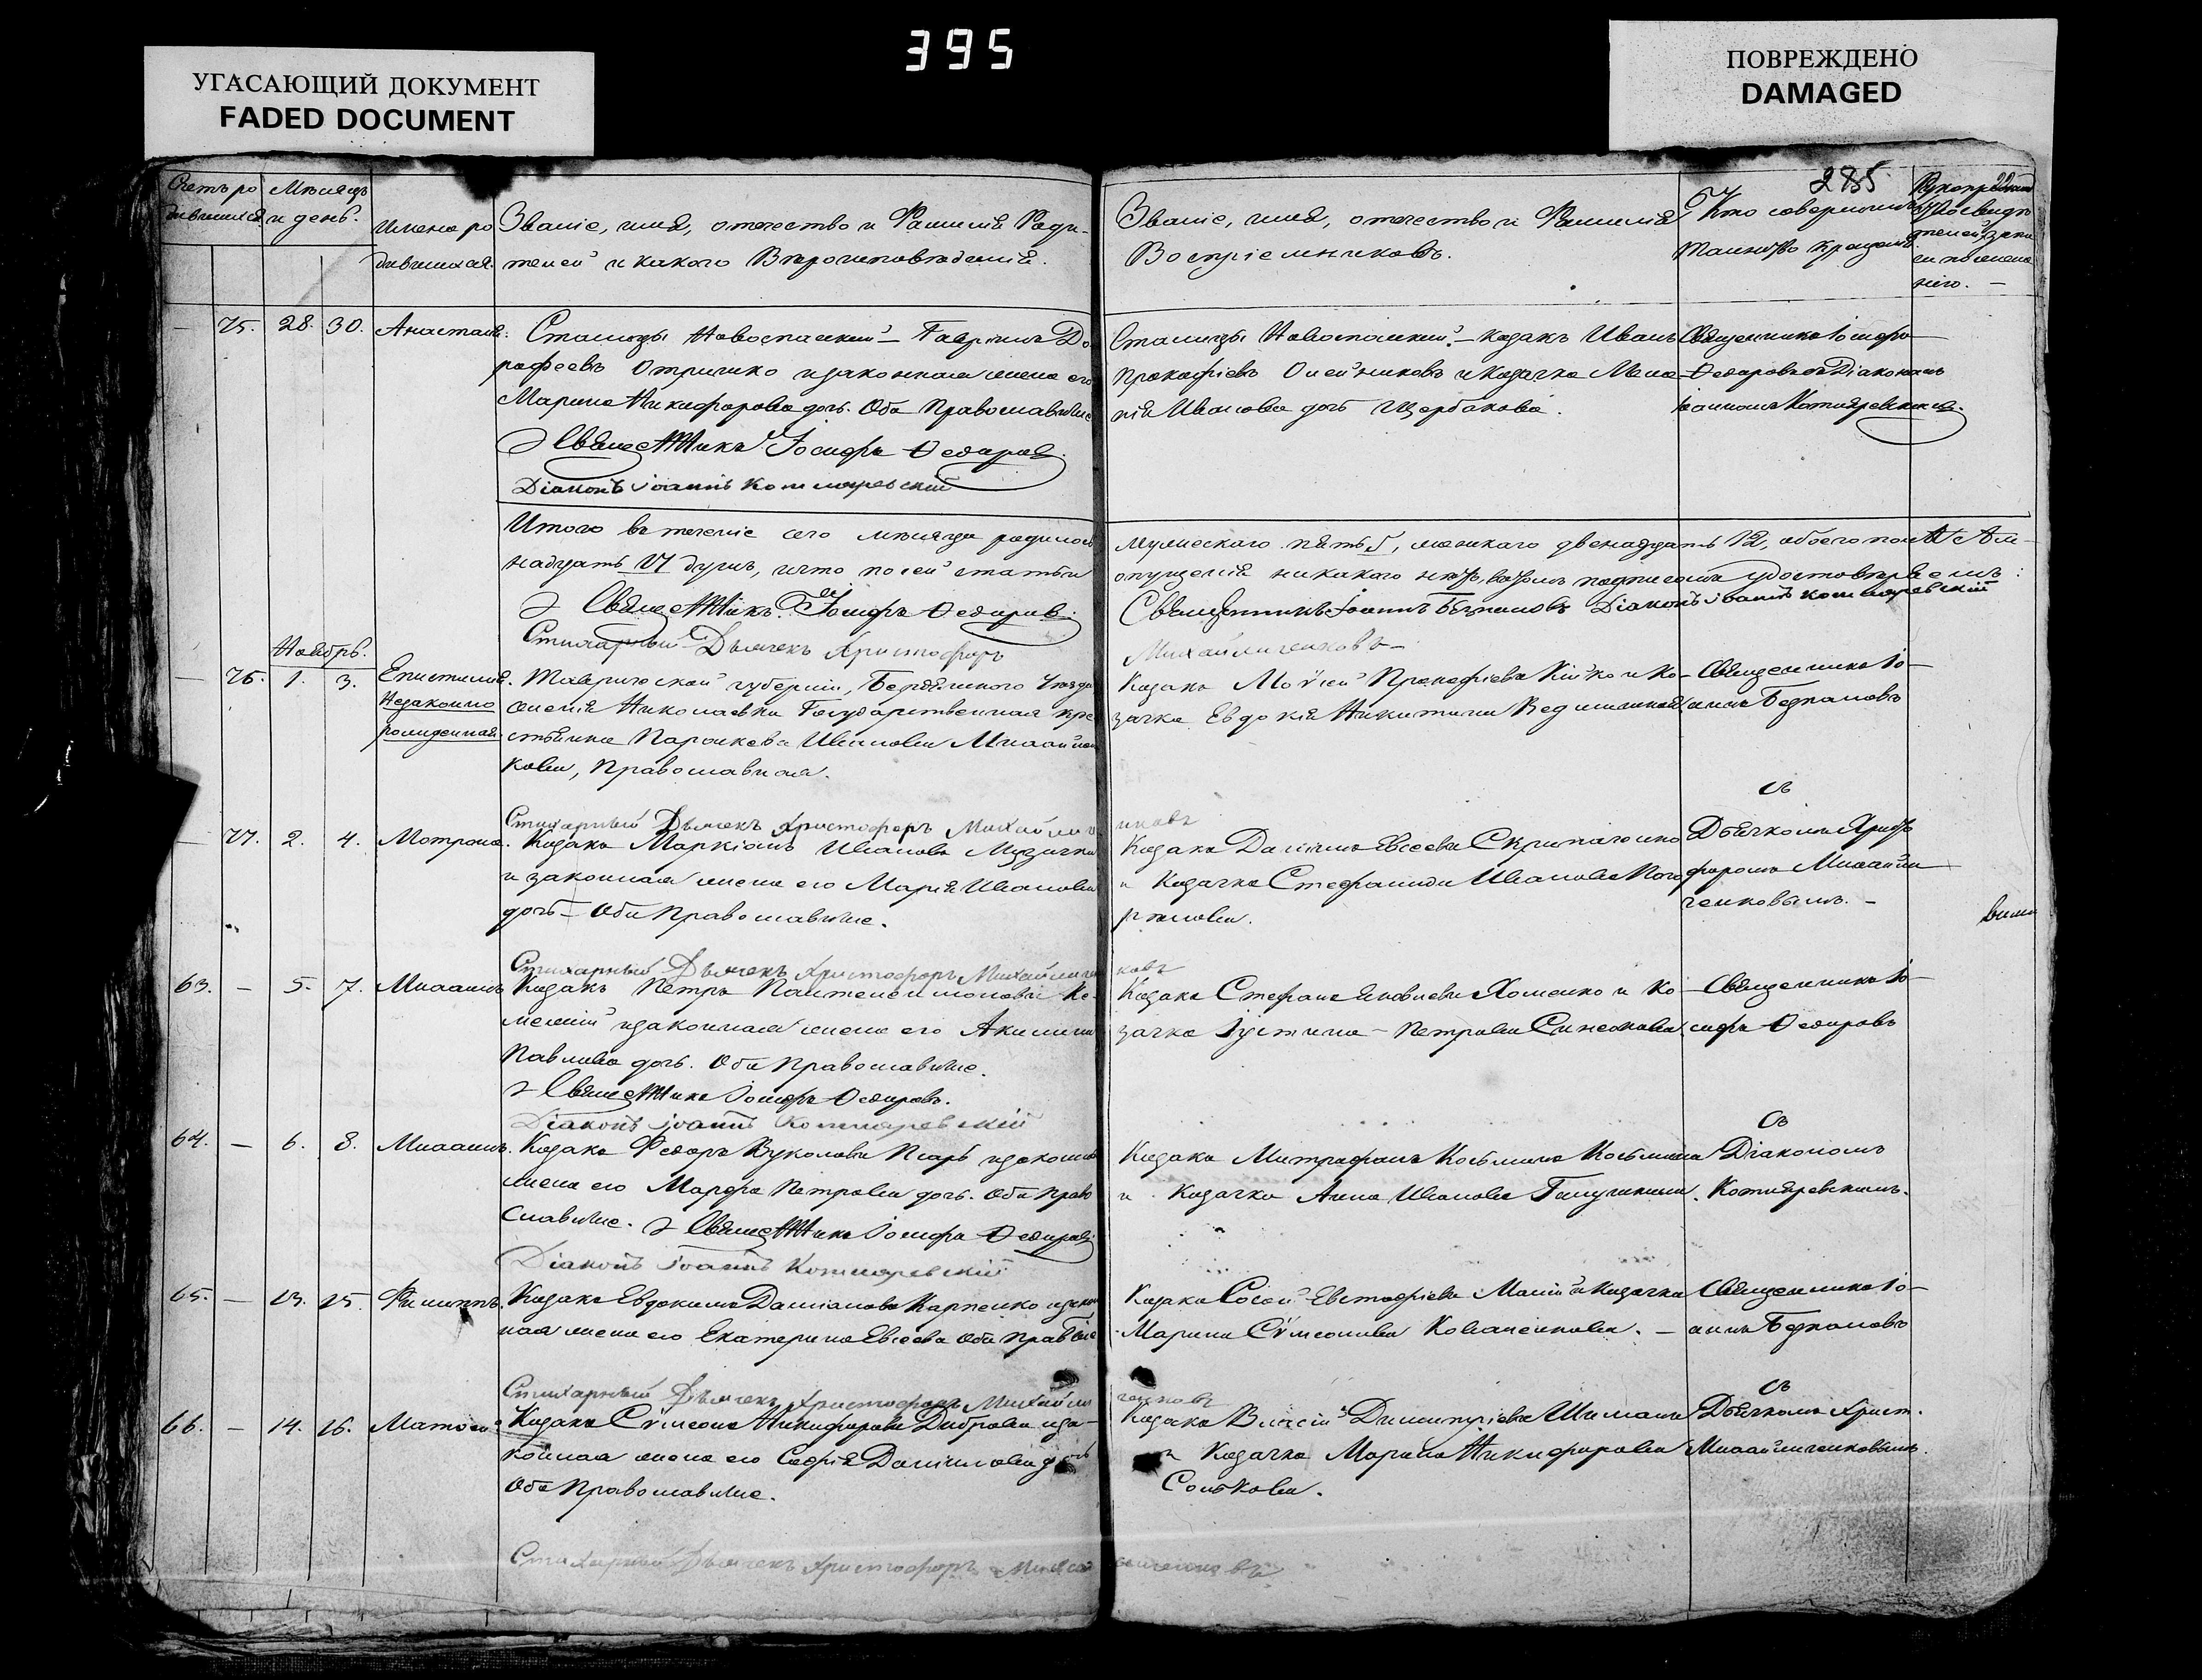 395
УГАСАЮЩИЙ ДОКУМЕНТ
FADED DOCUMENT
ПОВРЕЖДЕНО
DAMAGED
285
Счетъ ро
дившихся
Мѣсяцъ
и день.
Имена ро
дившихся.
Званіе, имя, отечество и Фамилія Роди-
телей и какого Вѣроисповѣданія.
Званіе, имя, отечество и Фамилія
Воспріемниковъ.
Кто совершалъ
таинство крещенія.
— 75. 28. 30. Анастасія.
Станицы Новоспаской — Гавріилъ До
рофеевъ Отришко и законная жена его
Марина Никифорова дочь. Оба Православные
Священникъ Іосифъ Ѳедоровъ.
Діаконъ Іоаннъ Котляревскій
Станицы Новоспаской — козакъ Иванъ
Прокофіевъ Олейниковъ и козачка Мела
нія Иванова дочь Щербакова.
Священникъ Іосифъ
Ѳедоровъ съ Діакономъ
Іоанномъ Котляревскимъ.
Итого въ теченіе сего мѣсяца родилось
надцать 17 душъ, и что по сей статьи
Священникъ Іосифъ Ѳедоровъ.
Стихарный Дьячекъ Христофоръ
мужескаго пять 5, женскаго двенадцать 12, обоего пола
опущенія никакого нѣтъ, въ томъ подписомъ удостовѣряемъ:
Священникъ Іоаннъ Безпаловъ Діаконъ Іоаннъ Котляревскій
Михайличенковъ
Ноябрь.
— 76. 1. 3. Епистимія.
Незаконно
рожденная.
Таврической губерніи, Бердянского Уезда
селенія Николаевки Государственная кре
стьянка Параскева Иванова Михайлен
кова, Православная.
Козакъ Моѵсей Прокофіевъ Кійко и Ко-
зачка Евдокія Никитина
Священникъ Іо-
аннъ Безпаловъ
Стихарный Дьячекъ Христофоръ Михайличе
нковъ
съ
— 77. 2. 4. Мотрона.
Козакъ Маркіанъ Ивановъ Музычка
и законная жена его Марія Иванова
дочь — Оба Православные.
Козакъ Даніилъ Евсеевъ Скрипаченко
и Козачка Стефанида Иванова Пого
рѣлова.
Дьячкомъ Христо
форомъ Михайли
ченковымъ. —
Стихарный Дьячекъ Христофоръ Михайличен
ковъ
63. — 5. 7. Михаилъ
Козакъ Петръ Пантелеимоновъ Ко-
и законная жена его Акилина
Павлова дочь. Оба Православные.
Священникъ Іосифъ Ѳедоровъ.
Діаконъ Іоаннъ Котляревскій
Козакъ Стефанъ Яковлевъ Хоменко и Ко-
зачка Іустина — Петрова Синякова.
Священникъ Іо-
сифъ Ѳедоровъ
съ
64. — 6. 8. Михаилъ.
Козакъ Федоръ Вуколовъ Писарь и законная
жена его Марфа Петрова дочь. Оба Право
славные. Священникъ Іосифъ Ѳедоровъ
Діаконъ Іоаннъ Котляревскій
Козакъ Митрофанъ Козьминъ Козьминъ
и Козачка Анна Иванова Галушкина.
Діакономъ
Котляревскимъ.
65. — 13. 15. Филиппъ.
Козакъ Евдокимъ Даміановъ Карпенко и закон
ная жена его Екатерина Евсеева Оба Правосл
Козакъ Сосой Евстафіевъ Малій и козачка
Марина Сѵмеонова Коваленкова. —
Священникъ Іо-
аннъ Безпаловъ
Стихарный Дьячекъ Христофоръ Михайли
ченковъ
съ
66. — 14. 16. Матвей.
Козакъ Сѵмеонъ Никифоровъ Дибровa и за-
конная жена его Софія Даніилова дочь
Оба Православные.
Козакъ Власій Димитріевъ Шиманъ
и Козачка Марина Никифорова
Солькова.
Дьячкомъ Христ.
Михайличенковымъ.
Стихарный Дьячекъ Христофоръ Михайличенковъ